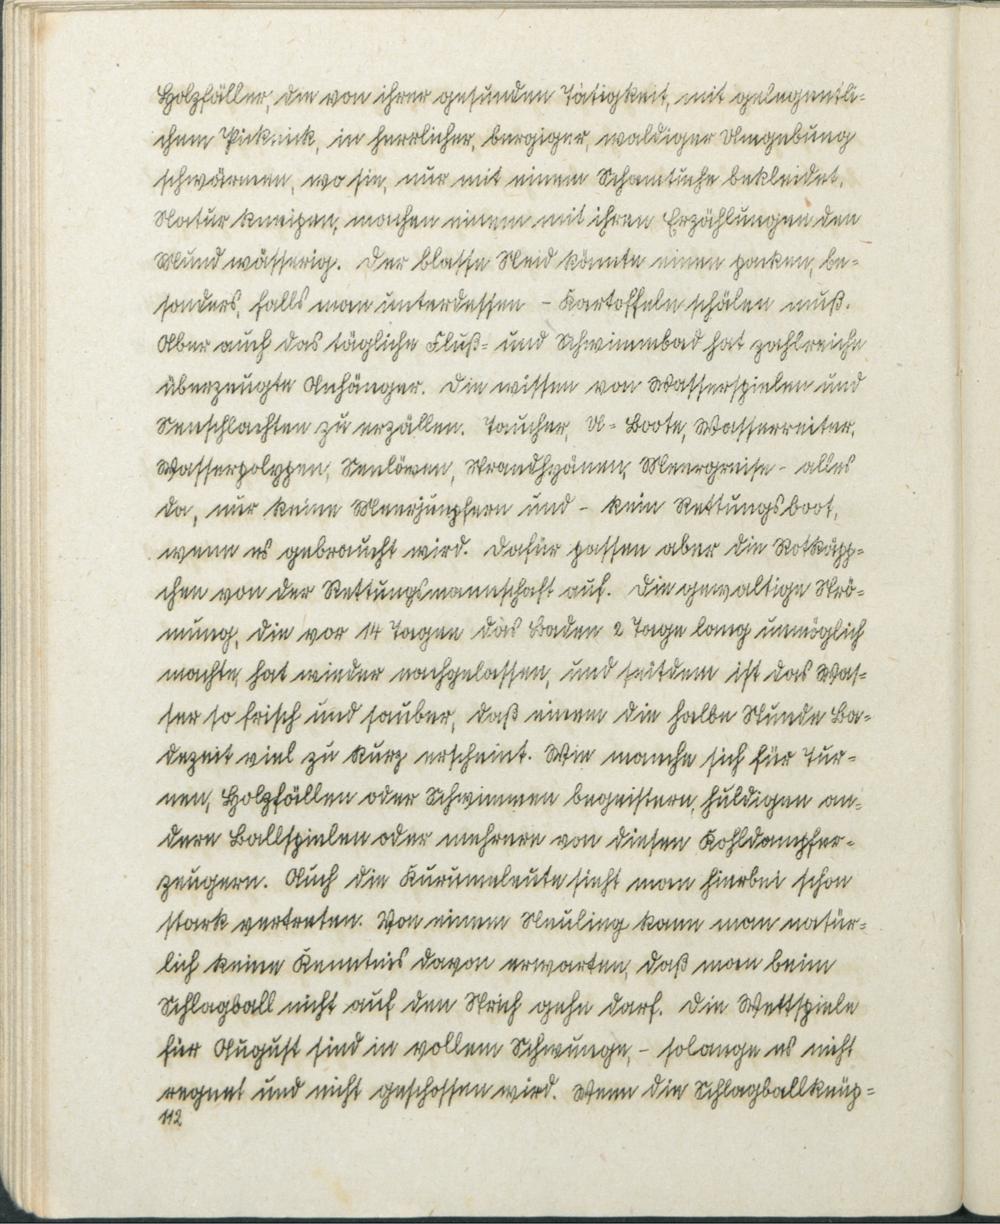 Holzfäller, die von ihrer gesunden Tätigkeit, mit gelegentli-
chem Picknick, in herrlicher, bergiger, waldiger Umgebung
schwärmen, wo sie, nur mit einem Schamtuche bekleidet,
Natur kneipen, machen einem mit ihren Erzählungen den
Mund wässerig. Der blasse Neid könnte einen packen, be-
sonders, falls man unterdessen - Kartoffeln schälen muß.
Aber auch das tägliche Fluß- und Schwimmbad hat zahlreiche
überzeugte Anhänger. Die wissen von Wasserspielen und
Seeschlachten zu erzällen. Taucher, U-Boote, Wasserreiter,
Wasserpolypen, Seelöwen, Strandhyänen, Meergreise - alles
da, nur keine Meerjungfern und - kein Rettungsboot,
wenn es gebraucht wird. Dafür passen aber die Rotkäpp-
chen von der Rettungsmannschaft auf. Die gewaltige Strö-
mung, die vor 14 Tagen das Baden 2 Tage lang unmöglich
machte, hat wieder nachgelassen, und seitdem ist das Was-
ser so frisch und sauber, daß einem die halbe Stunde Ba-
dezeit viel zu kurz erscheint. Wie manche sich für Tur-
nen, Holzfällen oder Schwimmen begeistern, huldigen an-
dere Ballspielen oder mehrere von diesen Kohldampfer-
zeugern. Auch die Kurumeleute sieht man hierbei schon
stark vertreten. Von einem Neuling kann man natür-
lich keine Kenntnis davon erwarten, daß man beim
Schlagball nicht auf den Strich gehn darf. Die Wettspiele
für August sind in vollem Schwunge, - solange es nicht
regnet und nicht geschossen wird. Wenn die Schlagballknüp-
112